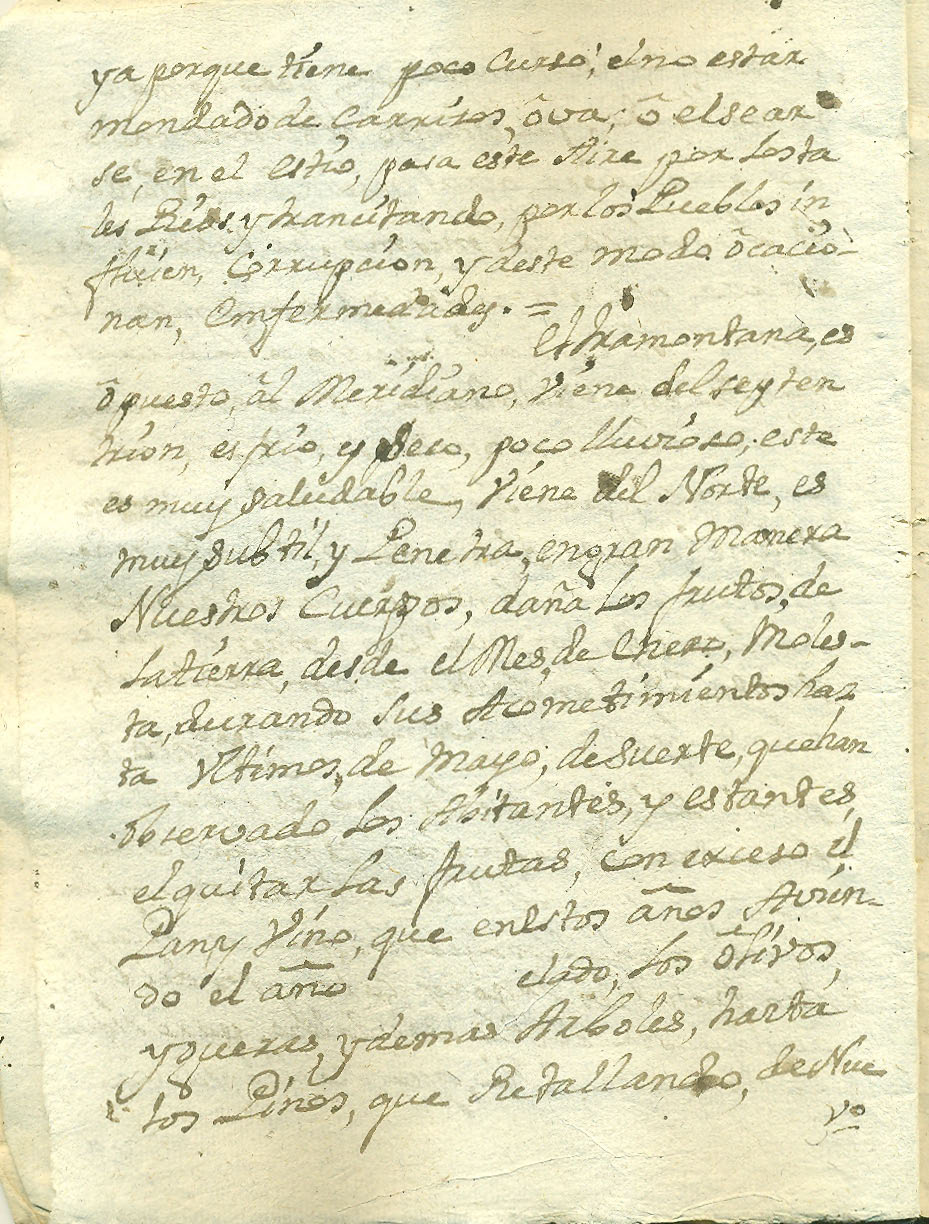 ya porque tiene poco Curso, el no estar
mondado de Carrisos, ôva; ô el secar
se, en el estio, pasa este Aire por los ta
les Rios, y trancitando, por los Pueblos in
fluien, Corrupcion, y deste modo ôcacio-
nan, Emfermedades. =
El tramontana, es
ôpuesto, âl Meridiano, Viene del septen
trion, es frio, y Seco, poco lluvioso, este
es muy saludable, Viene del Norte, es
muy subtil, y Penetra, en gran Manera
Nuestros Cuerpos, daña los frutos, de
la tierra, desde el Mes, de Enero, Moles-
ta, durando sus Acometimientos has
ta Vltimos, de Mayo, de Suerte, que han
observado los Abitantes, y estantes,
el quitar las frutas, con exceso el
Pan y Vino, que en Estos años Avien-
do el año elado, los ôlivos,
ygueras, y demas Arboles, hasta
los Pinos, que Retallando, de Nue
vo